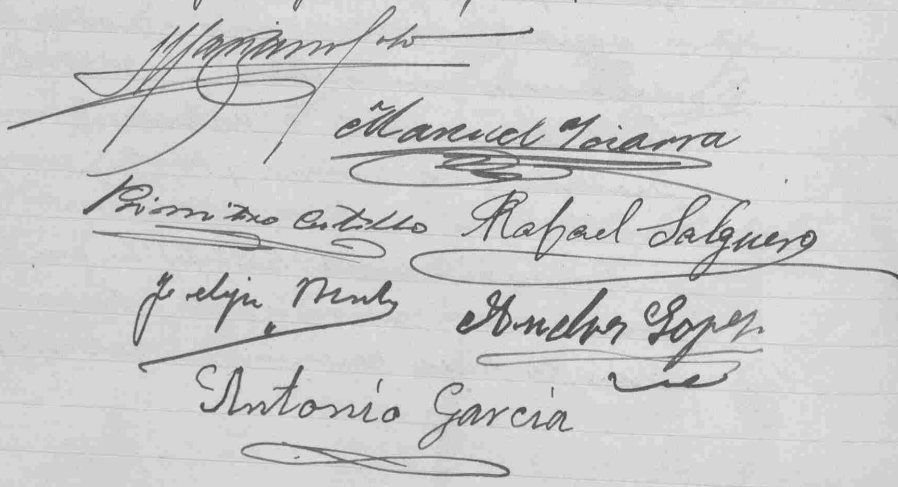 Mariano Soto
Manuel
Primitivo Castillo Rafael Salguero
Felipe Andres Lopez
Antonio García